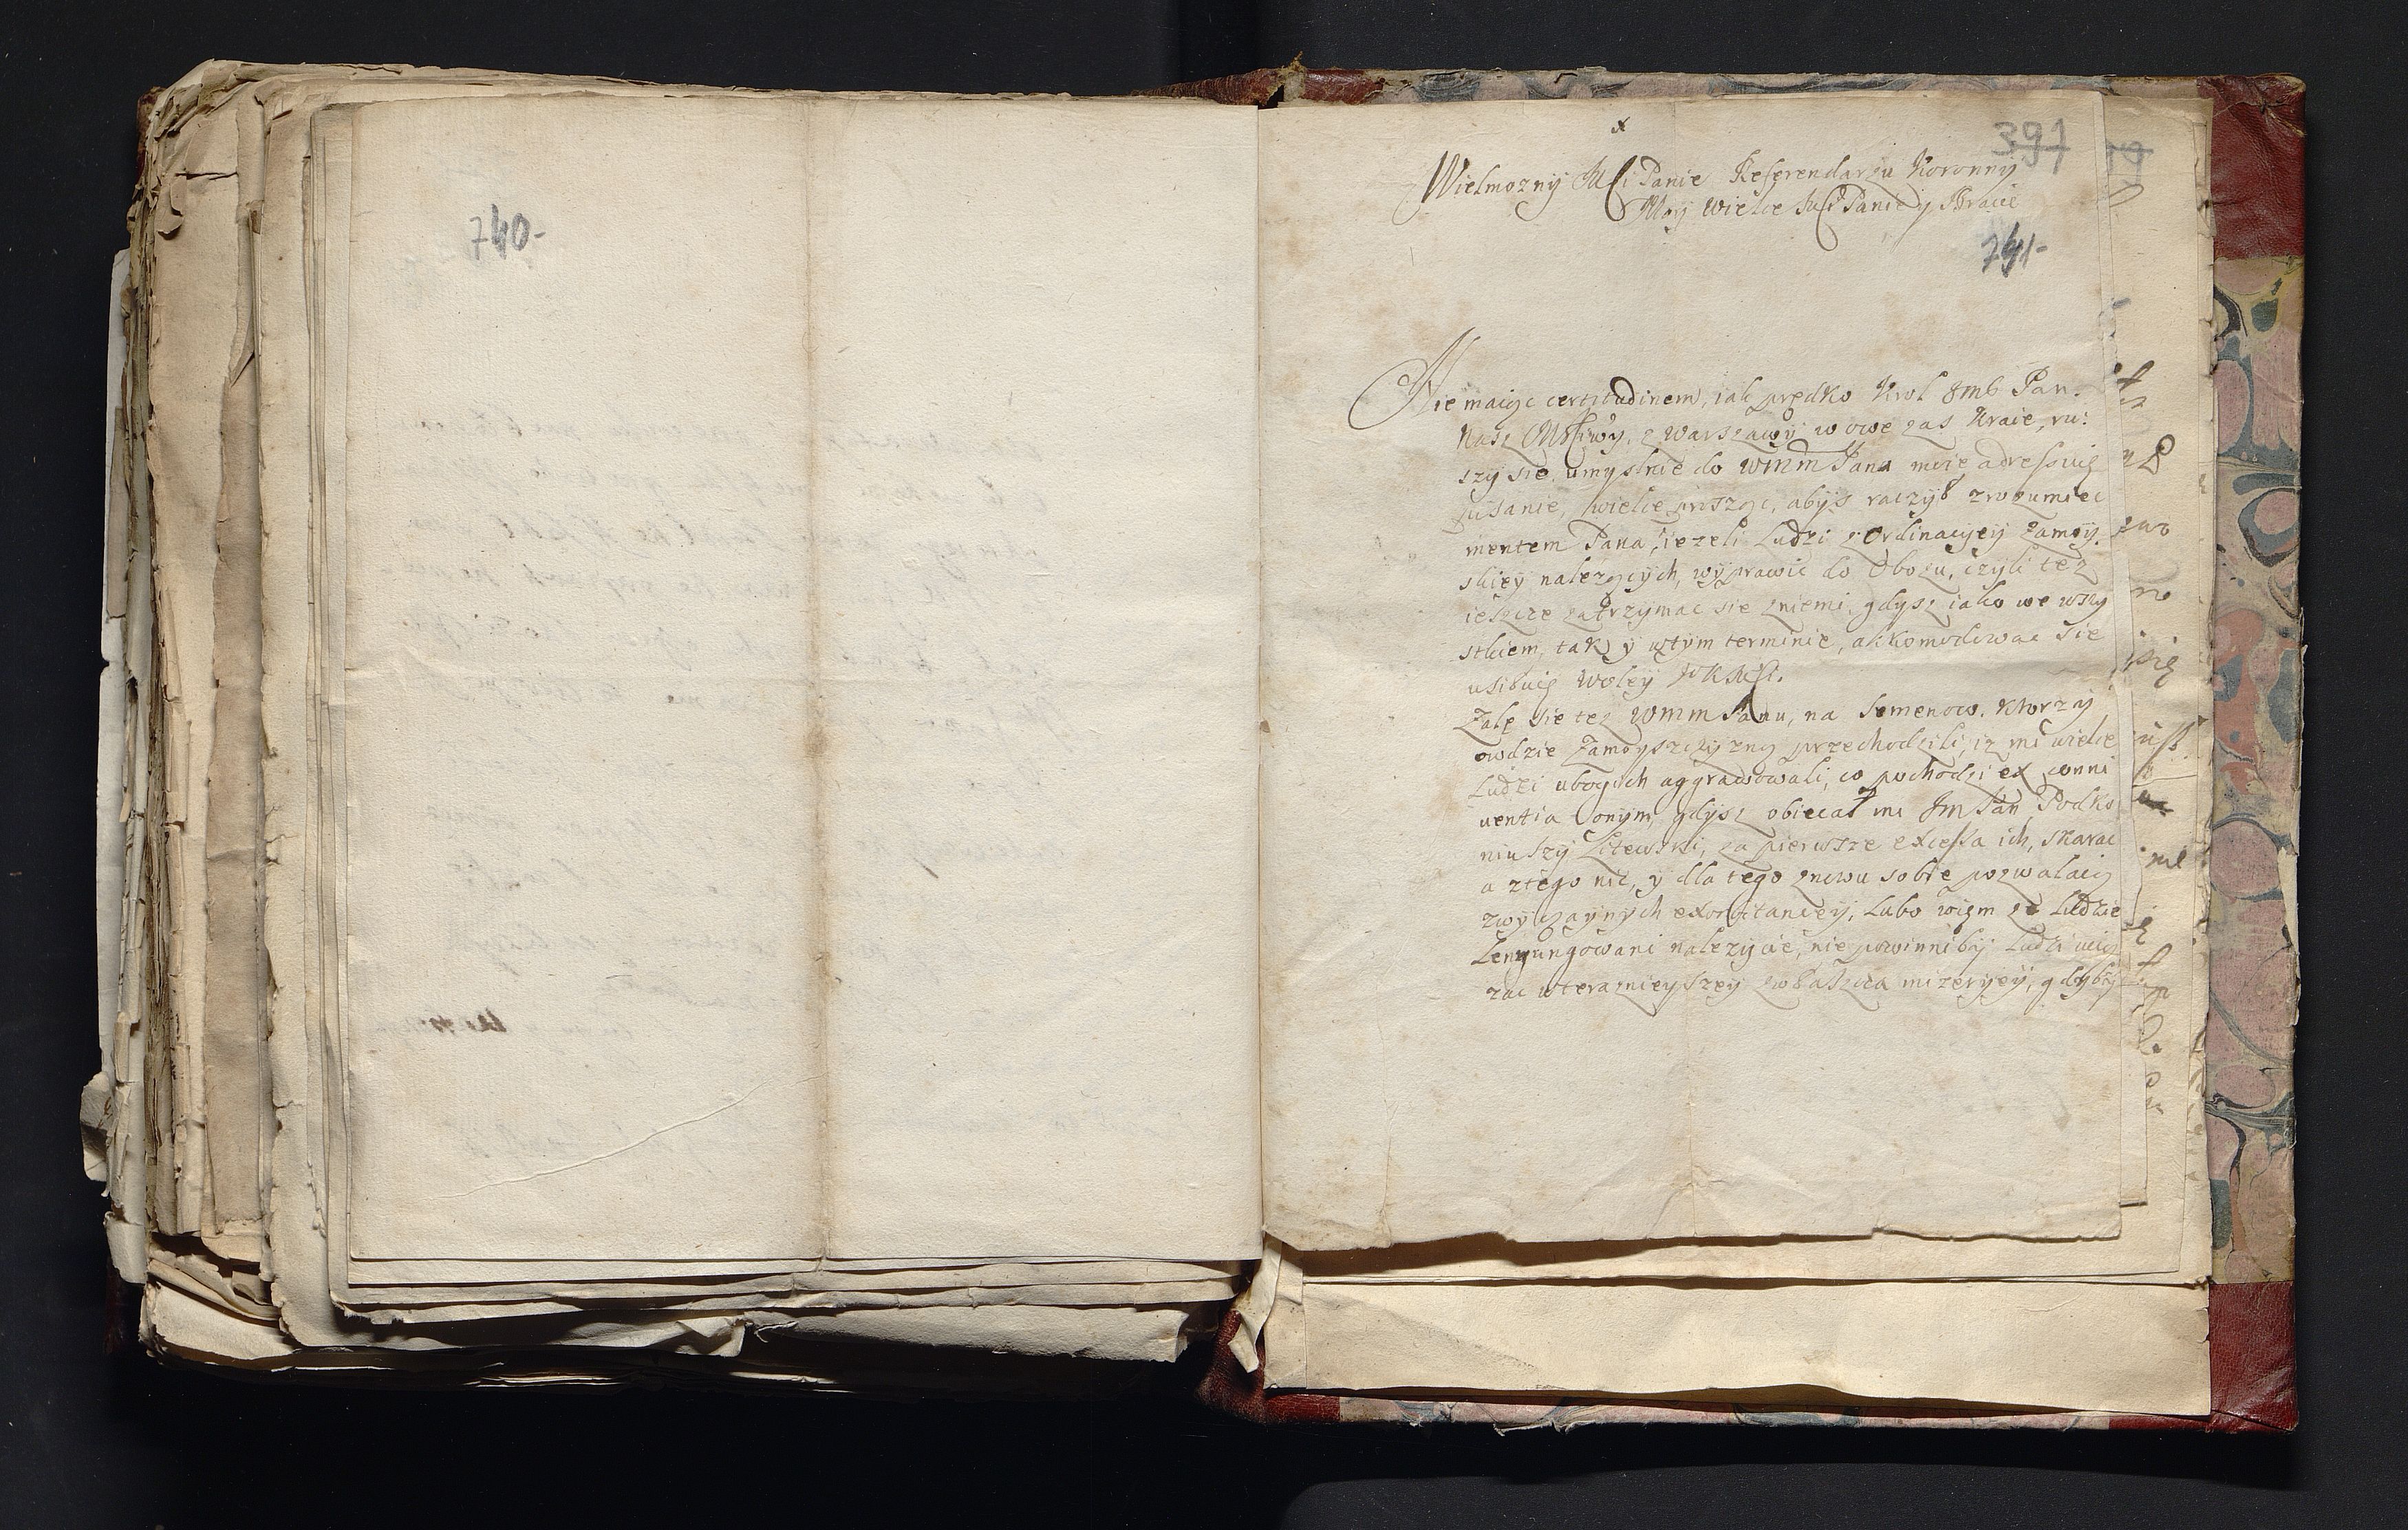 740-
391
Wielmozny Msci Panie Referendarzu Koronny
Moy Wielce Msci Panie y Bracie
741-
Nie maiąc certitudinem, iak prędko Krol Jmć Pan
Nasz Msciwy, z Warszawy w owe zas Kraie, ru:
szy się, umyslnie do WMM Pana moie adressuię
pisanie, wielce prosząc, abys raczył zrozumiec
mentem Pana, iezeli Ludzi z Ordinacyey Zamoy.
skiey nalezących, wyprawic do Obozu, czyli tez
ieszcze zatrzymac się zniemi, gdysz iako we wszy
stkiem, tak y wtym terminie, akkomodowac się
usiłuię woley JKMsci.
Zalę się tez WMM Panu, na Semenow, ktorzy
owdzie Zamoyszczyzną przechodzili, iz mi wielce
Ludzi ubogich aggrawowali, co pochodzi ex conni
uentia onym, gdysz obiecał mi Jm Pan Podko
niuszy Litewski, za pierwsze excessa ich, skarac
a ztego nic, y dla tego znowu sobie pozwalaią
zwyczaynych exorbitancyi, Lubo wiem ze Ludzie
Lenungowani nalezycie, nie powinniby Ludzi ucią
zac wteraznieyszey zwłaszcza mizeryey, gdyby